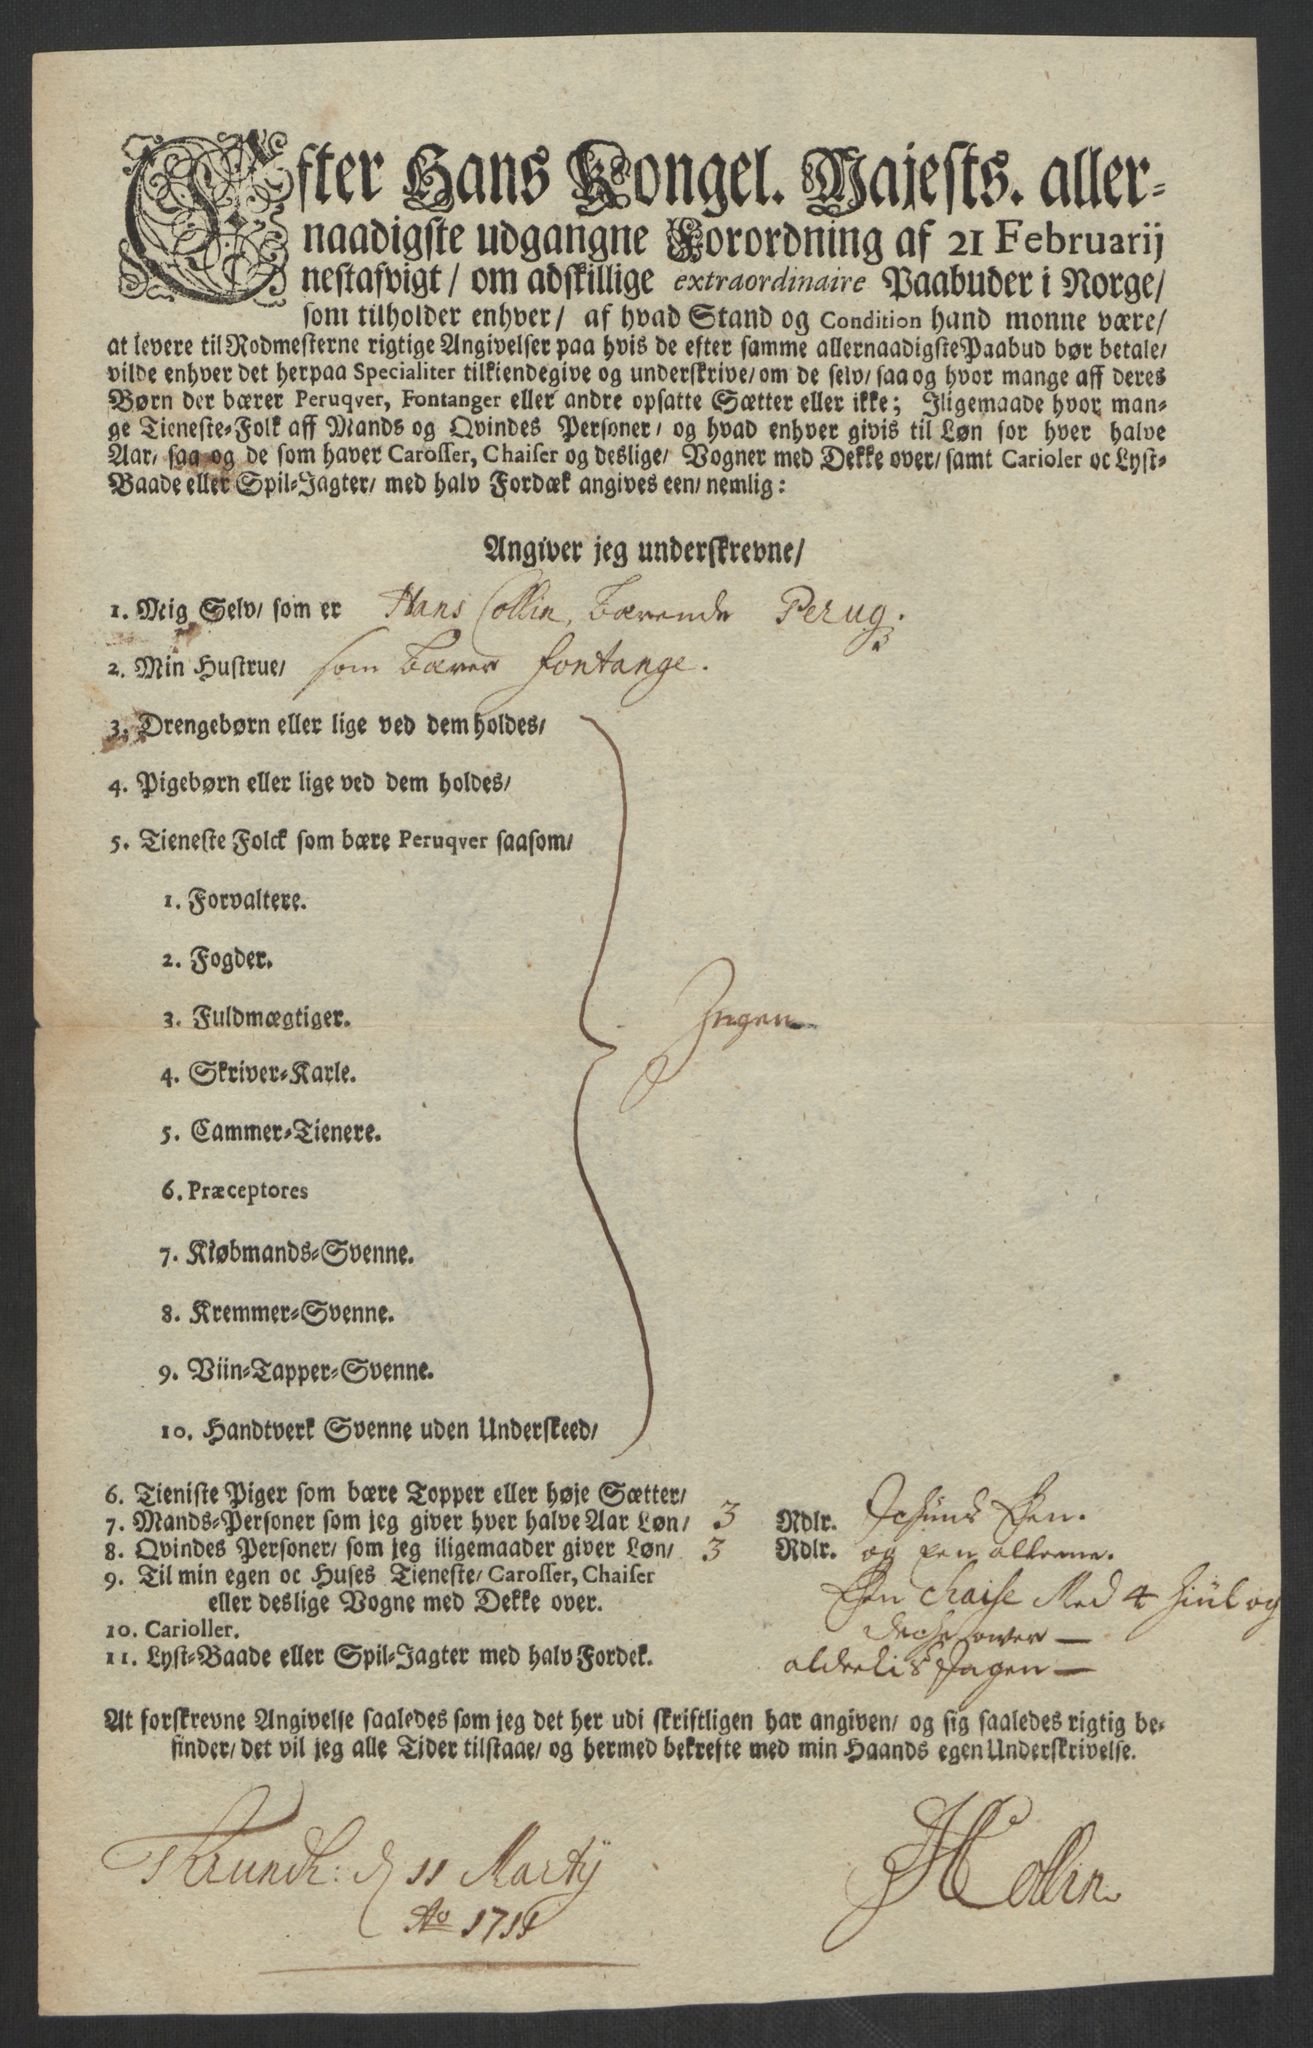 Efter Hans Kongel. Majests. aller-
naadigste udgangne Forordning af 21 Februarij
nestafvigt/ om adskillige extraordinaire Paabuder i Norge/
som tilholder enhver/ af hvad Stand og Condition hand monne være/
at levere til Rodmesterne rigtige Angivelser paa hvis de efter samme allernaadigste Paabud bør betale/
vilde enhver det herpaa Specialiter tilkiendegive og underskrive/ om de selv/ saa og hvor mange aff deres
Børn der bærer Peruqver, Fontanger eller andre opsatte Sætter eller ikke; Iligemaade hvor man-
ge Tieneste-Folk aff Mands og Qvindes Personer/ og hvad enhver givis til Løn for hver halve
Aar/ saa og de som haver Carosser, Chaiser og deslige/ Vogner med Dekke over/ samt Carioler oc Lyst-
Baade eller Spil-Jagter/ med halv Fordæk angives een/ nemlig:
Angiver jeg underskrevne/
1. Mig Selv/ som er Hans Collin, bærende Peruq.
2. Min Hustrue/ som bærer fontange.
3. Drengebørn eller lige ved dem holdes/
4. Pigebørn eller lige ved dem holdes/
5. Tieneste Folck som bære Peruqver saasom/
1. Forvaltere.
2. Fogder.
3. Fuldmægtiger. Ingen
4. Skriver-Karle.
5. Cammer-Tienere.
6. Præceptores
7. Kiøbmands-Svenne.
8. Kremmer-Svenne.
9. Viin-Tapper-Svenne.
10. Handtverk Svenne uden Underskeed/
6. Tieniste Piger som bære Topper eller høje Sætter/
7. Mands-Personer som jeg giver hver halve Aar Løn/ 3 Rdlr. Een.
8. Qvindes Personer/ som jeg iligemaader giver Løn/ 3 Rdlr. og Een
9. Til min egen oc Huses Tieneste/ Carosser, Chaiser
eller deslige Vogne med Dekke over. Een Chaise Med 4 Hiul og
10. Carioller. deche over
11. Lyst-Baade eller Spil-Jagter med halv Fordek. aldeelis Ingen
At forskrevne Angivelse saaledes som jeg det her udi skriftligen har angiven/ og sig saaledes rigtig be-
finder/ det vil jeg alle Tider tilstaae/ og hermed bekrefte med min Haands egen Underskrivelse.
Trundh: d 11 Martij
Ao 1711
HCollin